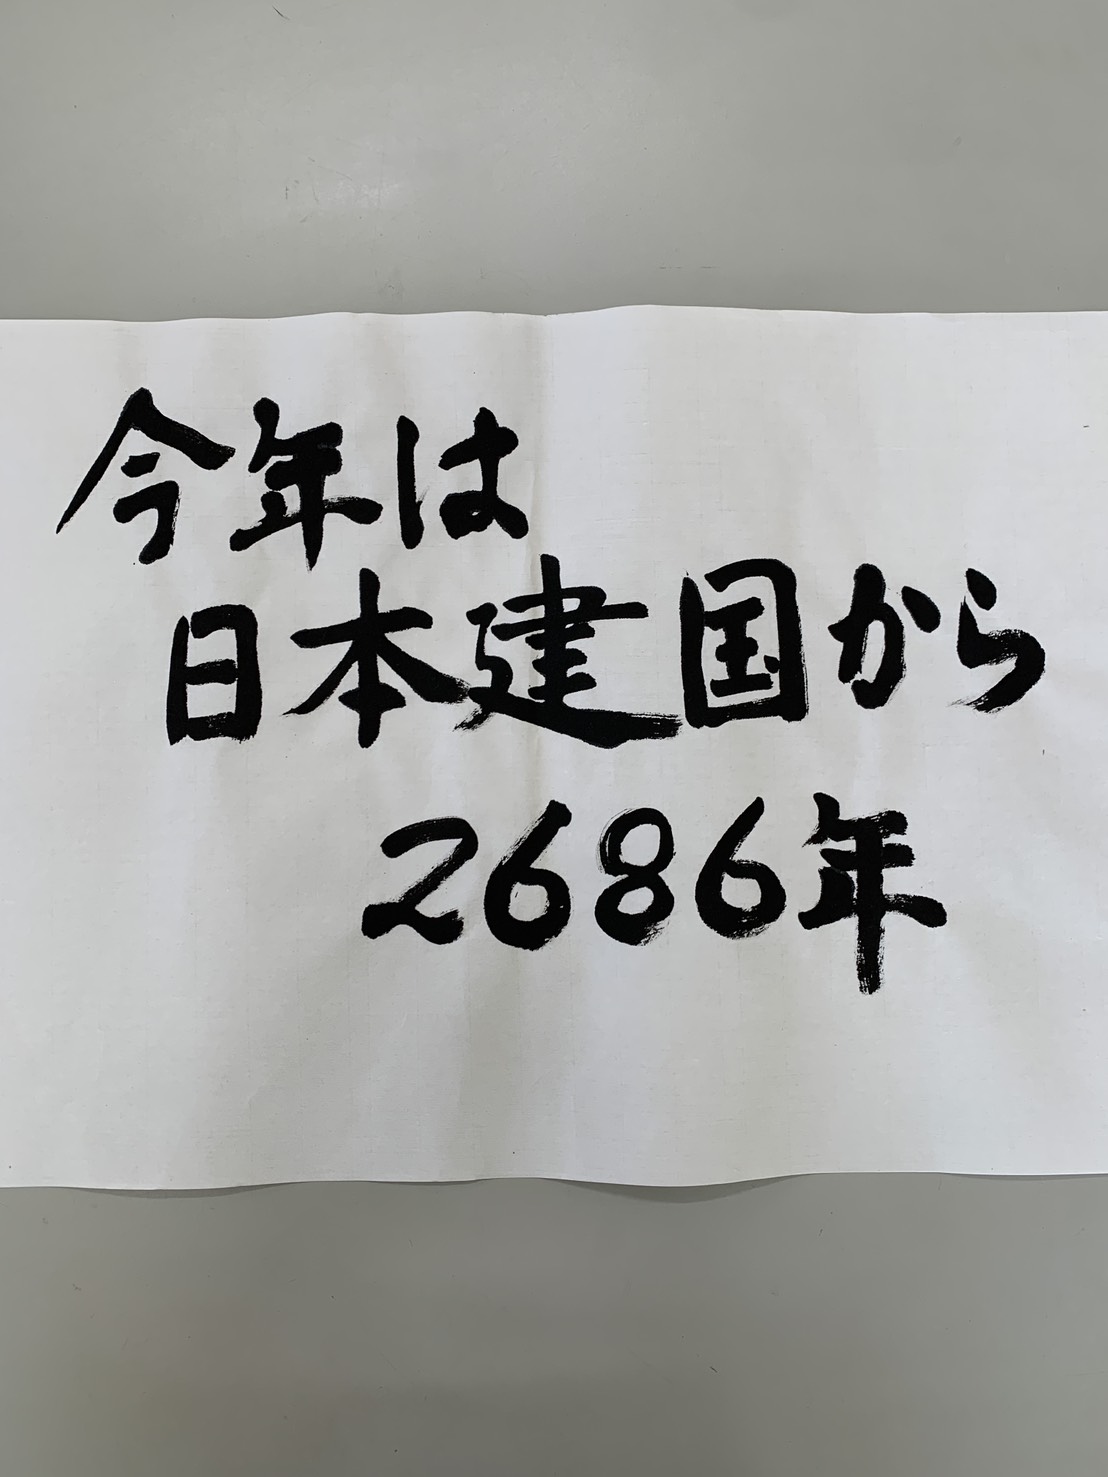 今年は
日本建国から
2686年